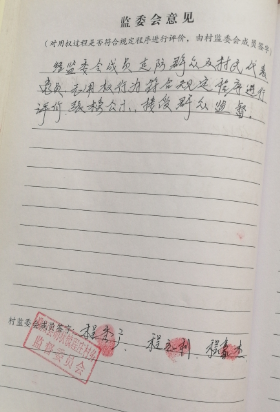 监委会意见
(对用权过程是否符合规定程序进行评价，由村监委会成员签字)
经监委会成员走访群众及村民代表
意见 本用权行为符合规定程序进行
评价 张榜公示，接受群众监督。
村监委会成员签字：程 程 程
监督委员会